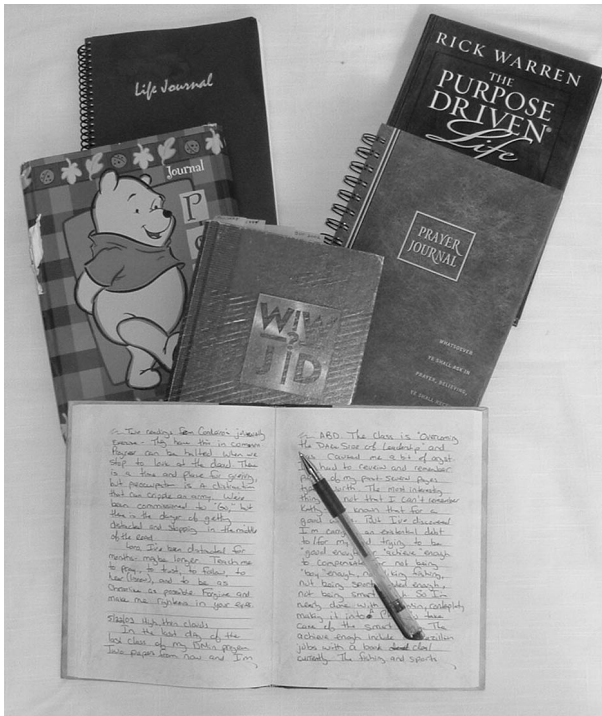 Life Journal
RICK WARREN
THE
PURPOSE
DRIVEN®
Life
Journal
P
PRAYER
JOURNAL
WHATSOEVER
YE SHALL ASK IN
PRAYER, BELIEVING,
YE SHALL
WWJD
?
Two readings from Cordeiro's journey
exercise. They have this in common
Prayer can be halted when we
stop to look at the dead. There
is a time and place for grieving,
but preoccupation is a distraction
that can cripple an army. We're
been commissioned to "Go," but
there is the danger of getting
distracted and stopping in the middle
of the road.
Lord, I've been distracted for
months maybe longer. Teach me
to pray, to trust, to follow, to
hear (listen), and to be as
Christlike as possible. Forgive and
make me righteous in your eyes.
5/22/03 High then clouds
In the last day of the
last class of my DMin program
Two papers from now and I'm
ABD. The class is "Overcoming
the Dark Side of Leadership" and
has caused me a bit of angst
had to review and remember
of my past several pages
worth. The most interesting
not that I can't remember
Kathy known that for a
good while. But I've discovered
I'm carrying an existential debt
to/for my trying to be
"good enough" "achieve enough"
to compensate for not being
"boy" enough, not liking fishing,
not being sports minded enough,
not being smart So I'm
nearly done with completely
making it into take
care of the smart The
achieve enough include
jobs with a bank and
currently. The fishing and sports